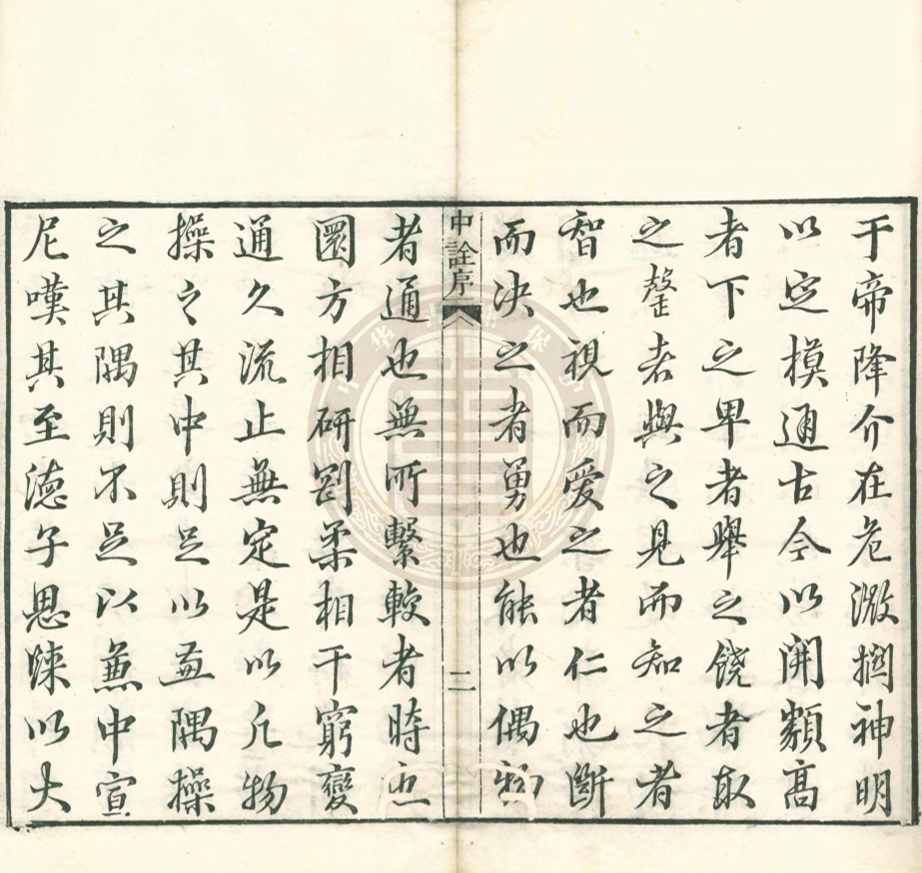 于帝降介在危微摑神明
以定模通古今以開纇高
者下之卑者舉之饒者取
之鏧者與之見而知之者
智也視而愛之者仁也斷
而决之者勇也能以偶
者通也無所繫較者時也
圜方相研剛柔相干窮變
通久流止無定是以凡物
操之其中則足以盖隅操
之其隅則不足以兼中宣
尼嘆其至德子思陳以大
中詮序
二